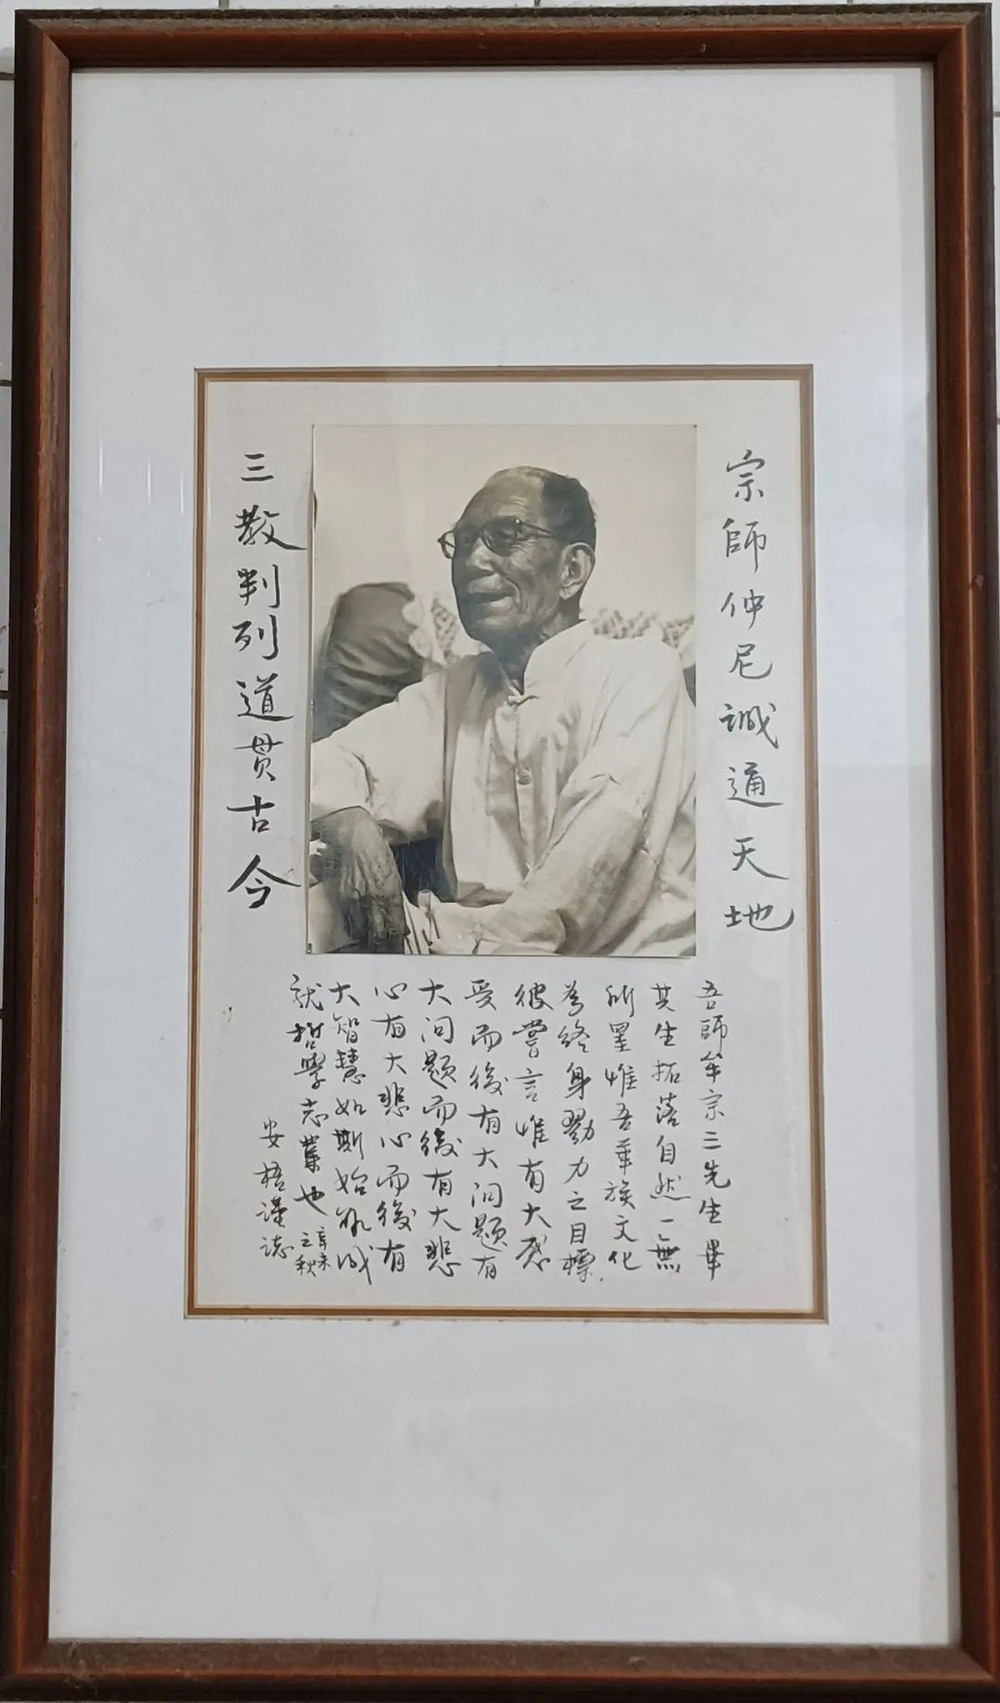 宗師仲尼誠通天地
三教判列道貫古今
吾師牟宗三先生畢
其生拓落自然一無
所罣惟吾華族文化
為終身勠力之目標
彼嘗言惟有大感
受而後有大問題有
大问题而後有大悲
心有大悲心而後有
大智慧如斯始能成
就哲學志業也
辛未之秋
安梧謹誌